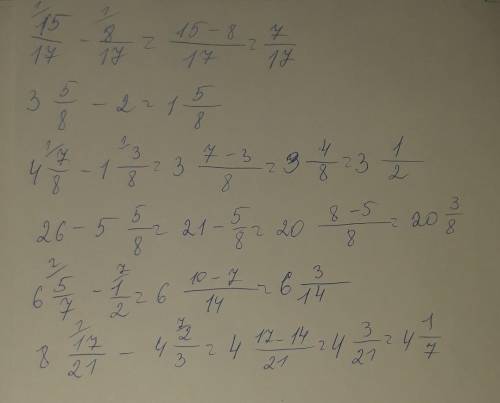 1/15/17 - 1/8/17 = 15-8/17 = 7/17
3 5/8 - 2 = 1 5/8
4 1/7/8 - 1 1/3/8 = 3 7-3/8 = 3 4/8 = 3 1/2
26 - 5 5/8 = 21 - 5/8 = 20 8-5/8 = 20 3/8
6 2/5/7 - 7/1/2 = 6 10-7/14 = 6 3/14
8 1/17/21 - 4 7/2/3 = 4 17-14/21 = 4 3/21 = 4 1/7